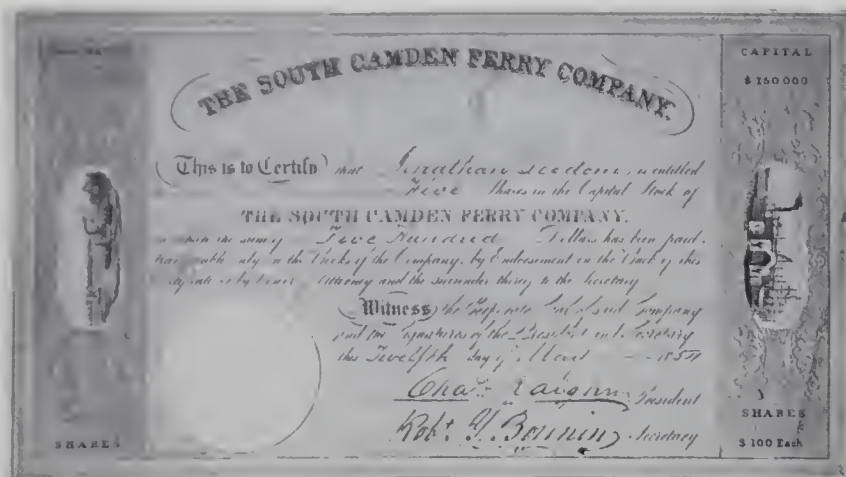 THE SOUTH CAMDEN FERRY COMPANY.
CAPITAL
$150000
This is to Certify that Jonathan is entitled
Five Shares in the Capital Stock of
THE SOUTH CAMDEN FERRY COMPANY,
on which the sum of Five Hundred Dollars has been paid.
transferable only on the Books of the Company, by Endorsement on the Back of this
by Power Attorney and the surrender thereof to the Secretary
Witness, the Corporate Seal of said Company
and the Signatures of the President and Secretary
this Twelfth day of
President
Robt. Y. Secretary
SHARES
SHARES
$100 Each